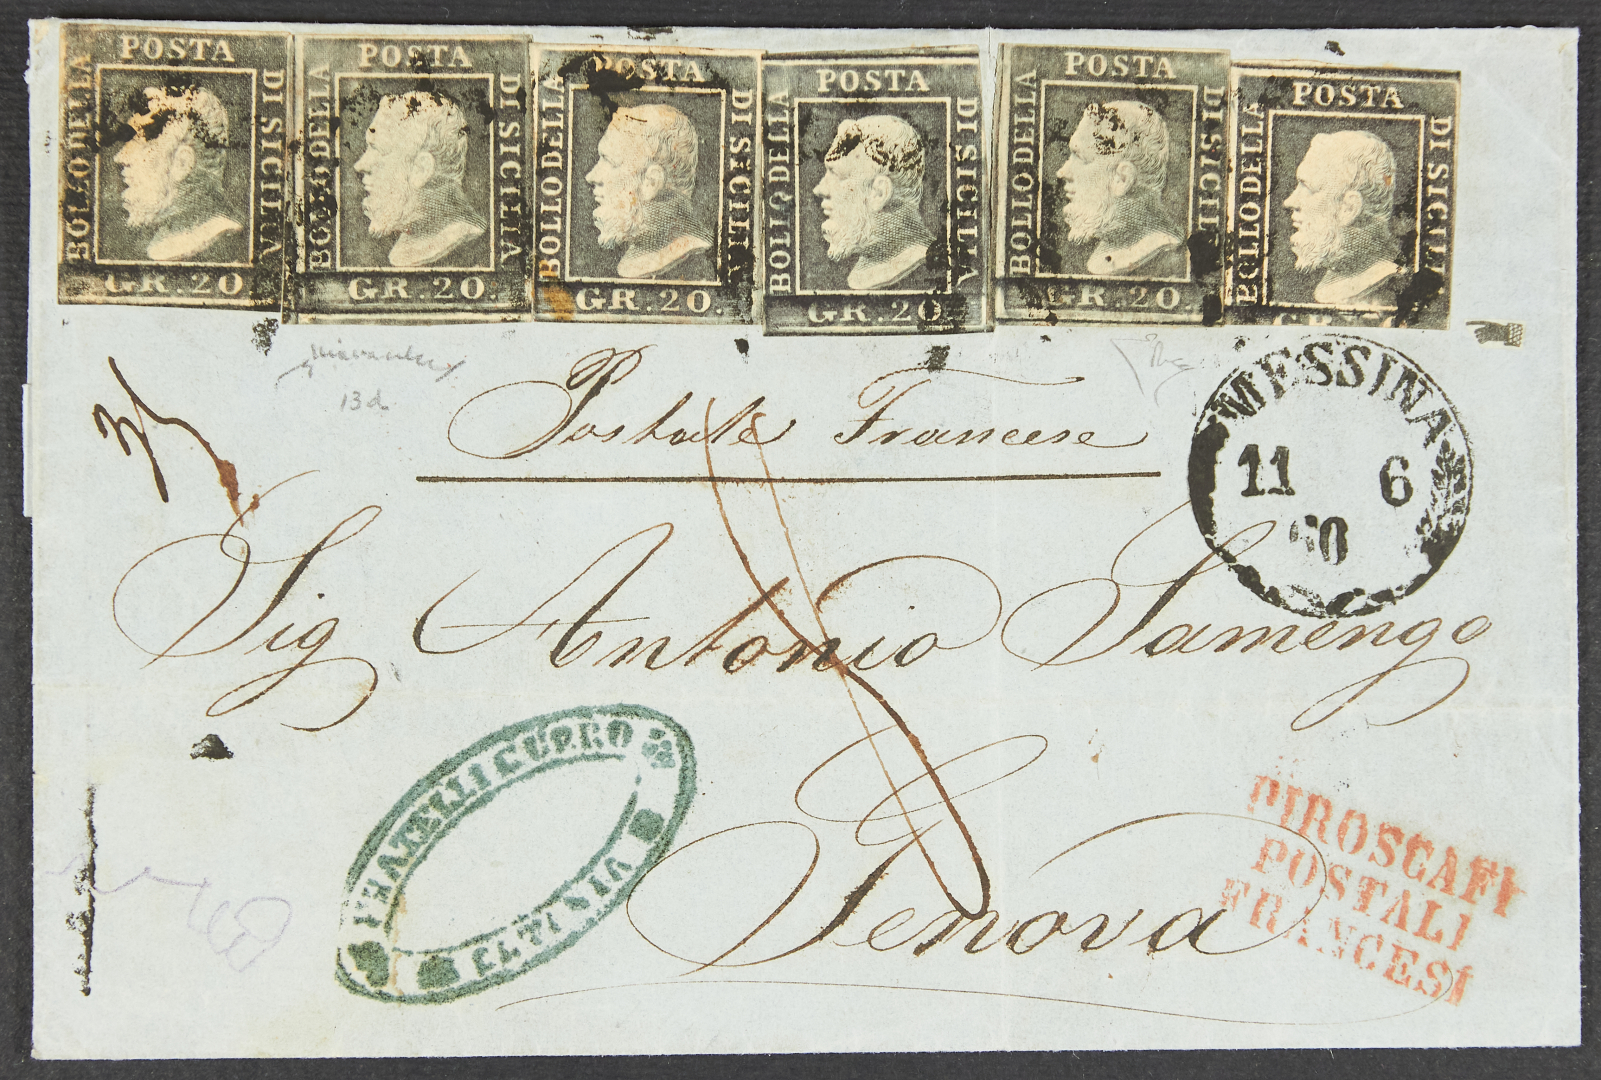 POSTA
BOLLO DELLA
DI SICILIA
GR.20.
POSTA
BOLLO DELLA
DI SICILIA
GR.20.
POSTA
BOLLO DELLA
DI SICILIA
GR.20.
POSTA
BOLLO DELLA
DI SICILIA
GR.20.
POSTA
BOLLO DELLA
DI SICILI
GR.20.
POSTA
BOLLO DELLA
DI SICILI
13d
Postale Francese
MESSINA
11 6
60
Sig Antonio Samengo
Genova
FRATELLI
MESSINA
PIROSCAFI
POSTALI
FRANCESI